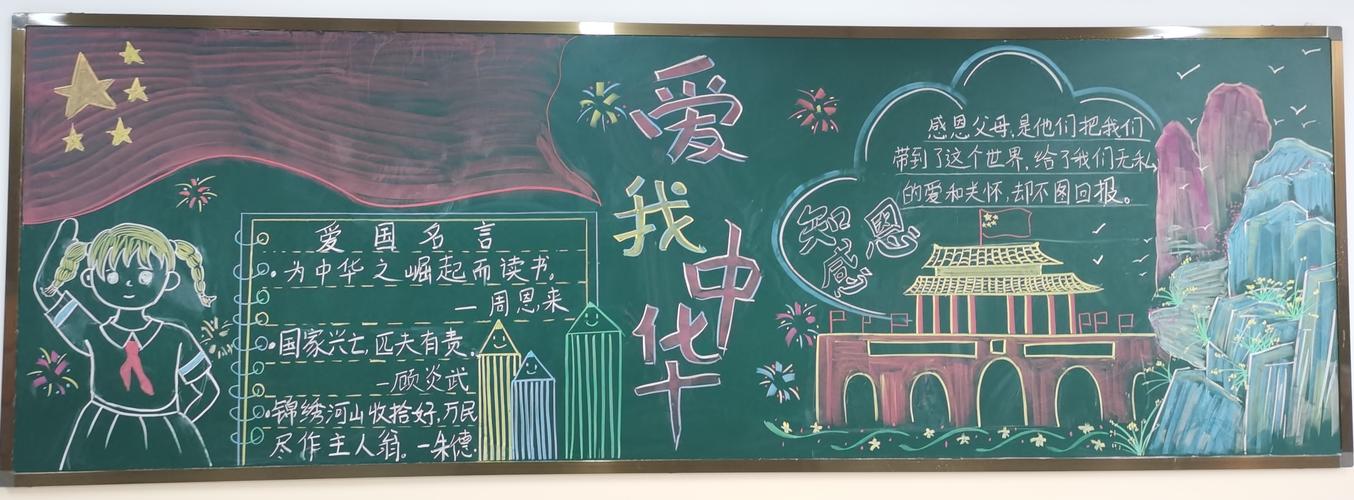 爱国名言
·为中华之崛起而读书。
—周恩来
·国家兴亡,匹夫有责。
—顾炎武
·锦绣河山收拾好,万民
尽作主人翁。—朱德
爱
我
中
华
知
感
恩
感恩父母,是他们把我们
带到了这个世界,给了我们无私
的爱和关怀,却不图回报。